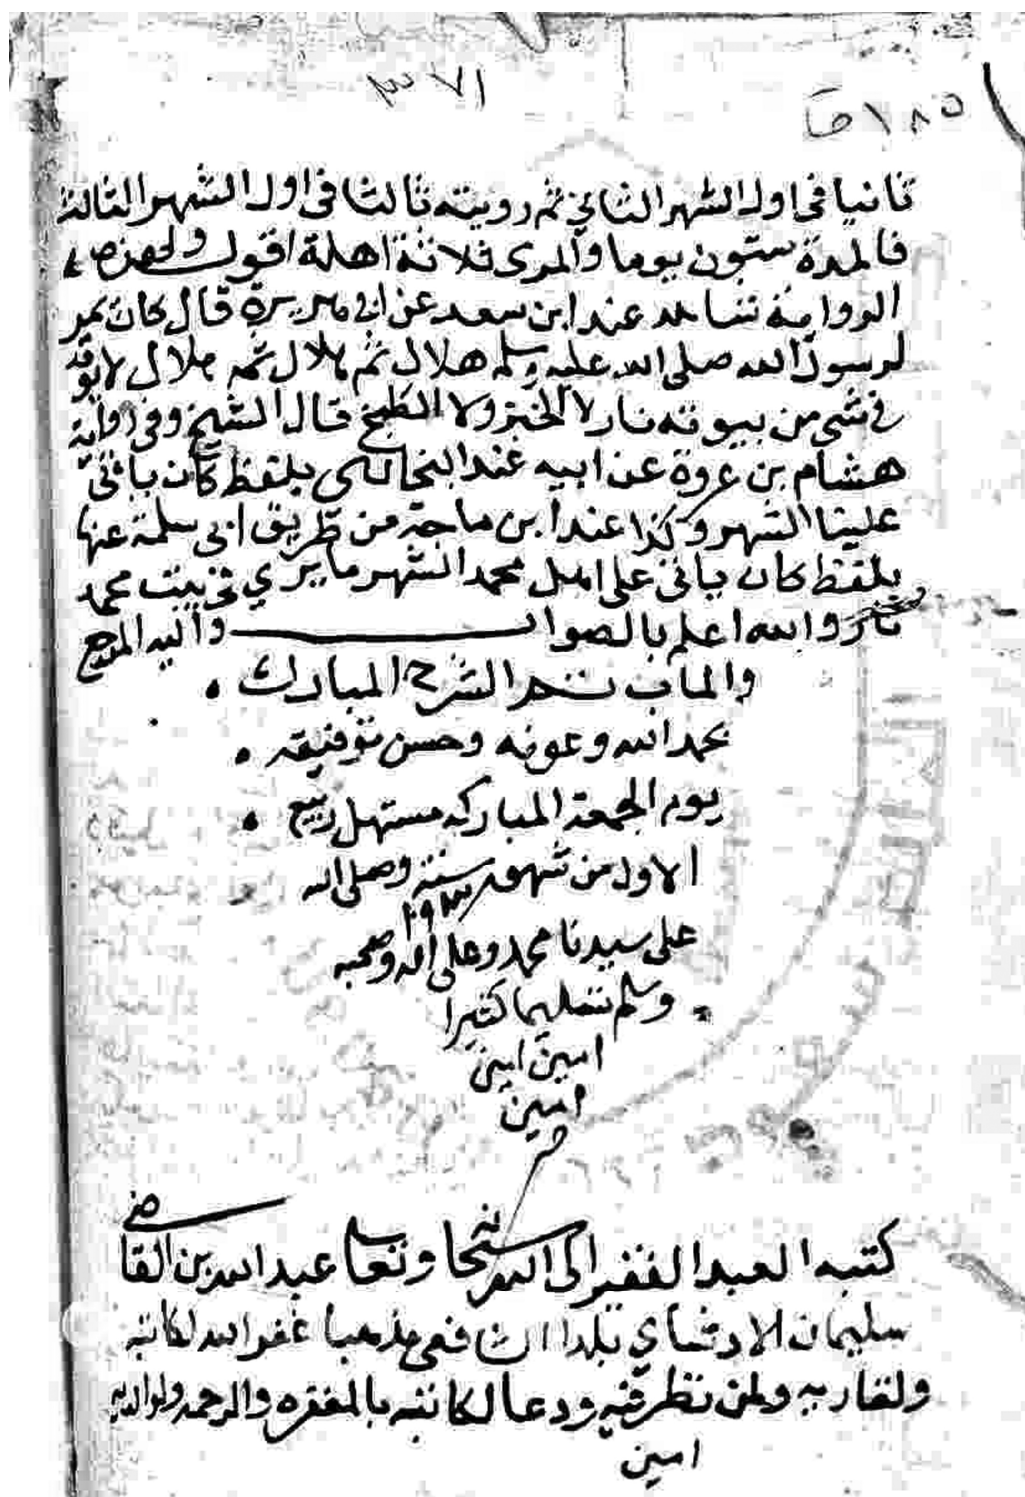 ٣٧١
١٨٥ ق
ثانيا فى اول الشهر الثاني ثم رويته ثالثا فى اول الشهر الثالث
فالمدة ستون يوما والمرى ثلاثة اهلة اقول ولهذه
الرواية شاهد عند ابن سعد عن ابى هريرة قال كان يمر
لرسول الله صلى الله عليه وسلم هلال ثم هلال ثم هلال لا يوقد
فى شى من بيوته نار لا لخبز ولا لطبخ قال الشيخ وفى رواية
هشام بن عروة عن ابيه عند البخارى بلفظ كان ياتى
علينا الشهر وكذا عند ابن ماجة من طريق ابى سلمة عنها
بلفظ كان ياتى على اهل محمد الشهر ما يرى فى بيت محمد
نار والله اعلم بالصواب واليه المرجع
والماب تم الشرح المبارك
بحمد الله وعونه وحسن توفيقه
يوم الجمعة المباركه مستهل ربيع
الاول من شهور سنة وصلى الله
على سيدنا محمد وعلى اله وصحبه
وسلم تسليما كثيرا
امين امين
امين
كتبه العبد الفقير الى الله سبحانه وتعالى عبد الله بن القاضى
سليمان بلدا الشافعى مذهبا غفر الله لكاتبه
ولقاريه ولمن نظر فيه ودعا لكاتبه بالمغفره والرحمه ولوالديه
امين